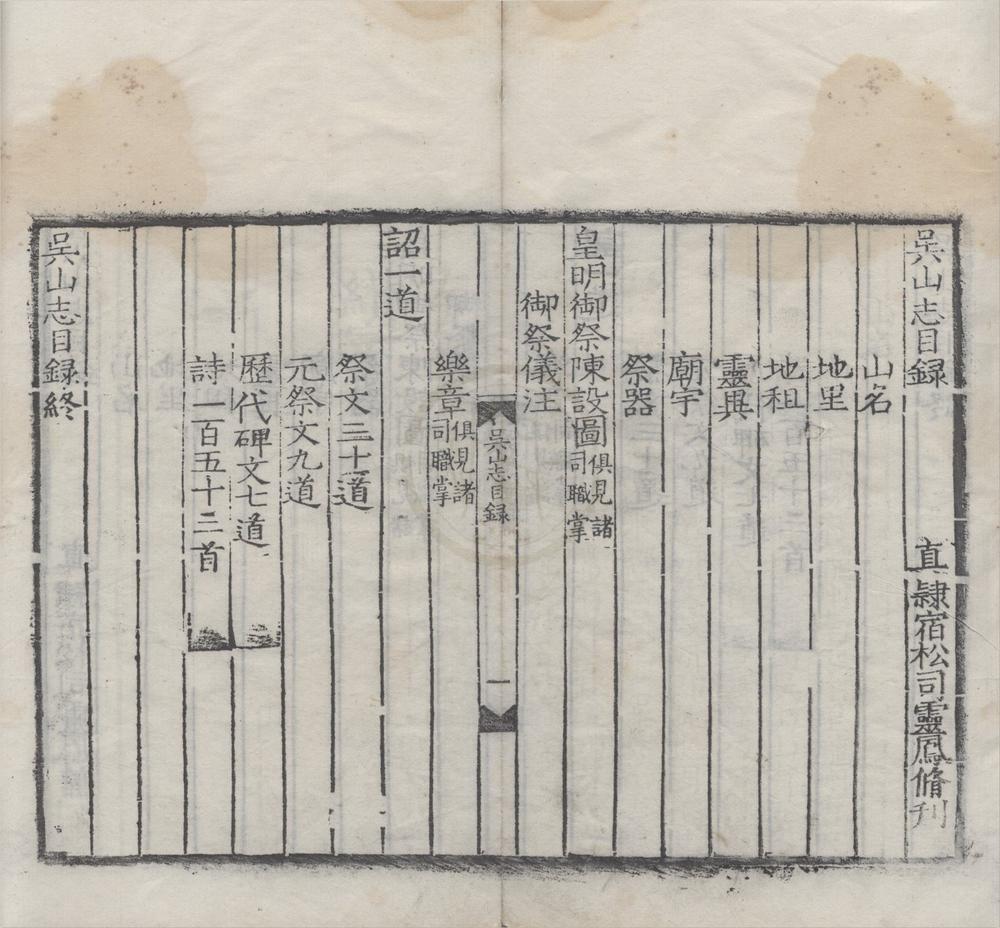 吳山志目録 直隷宿松司靈鳳脩刊
山名
地里
地租
靈異
廟宇
祭器
皇明御祭陳設圖俱見諸司職掌
御祭儀注
吳山志目録 一
樂章俱見諸司職掌
詔一道
祭文三十道
元祭文九道
歷代碑文七道
詩一百五十三首
吳山志目録終